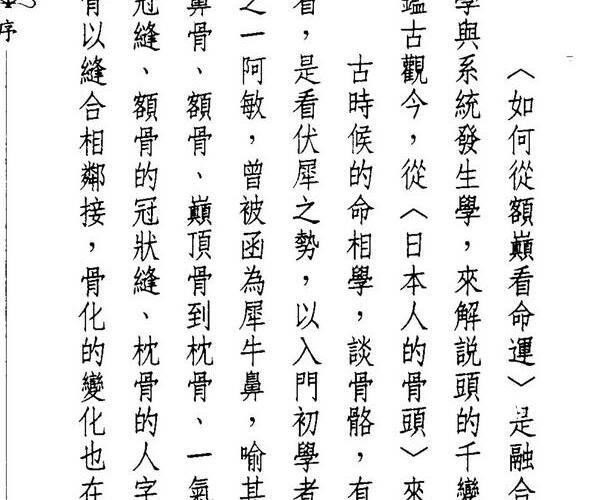 〈如何從額巔看命運〉是融合
學與系統發生學,來解說頭的千變
鑑古觀今,從〈日本人的骨頭〉來
古時候的命相學,談骨骼,有
看,是看伏犀之勢,以入門初學者
之一阿敏,曾被函為犀牛鼻,喻其
鼻骨、額骨、巔頂骨到枕骨、一氣
冠縫、額骨的冠狀縫、枕骨的人字
骨以縫合相鄰接,骨化的變化也在
序